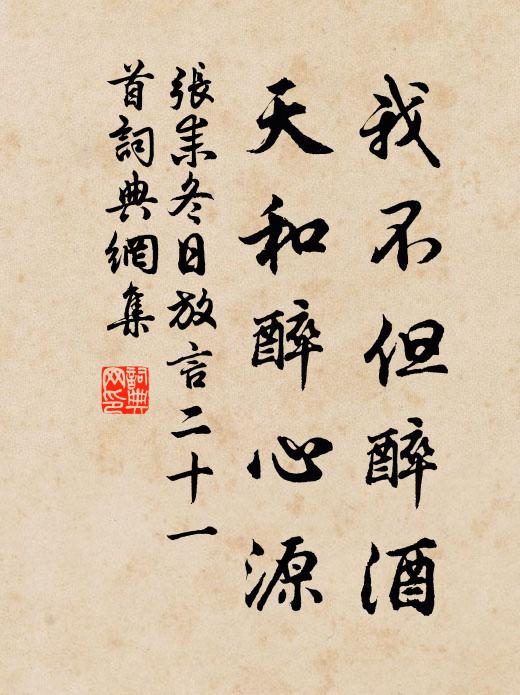 我不但醉酒
天和醉心源
張耒冬日放言二十一
首詞典網集
詞典
网印